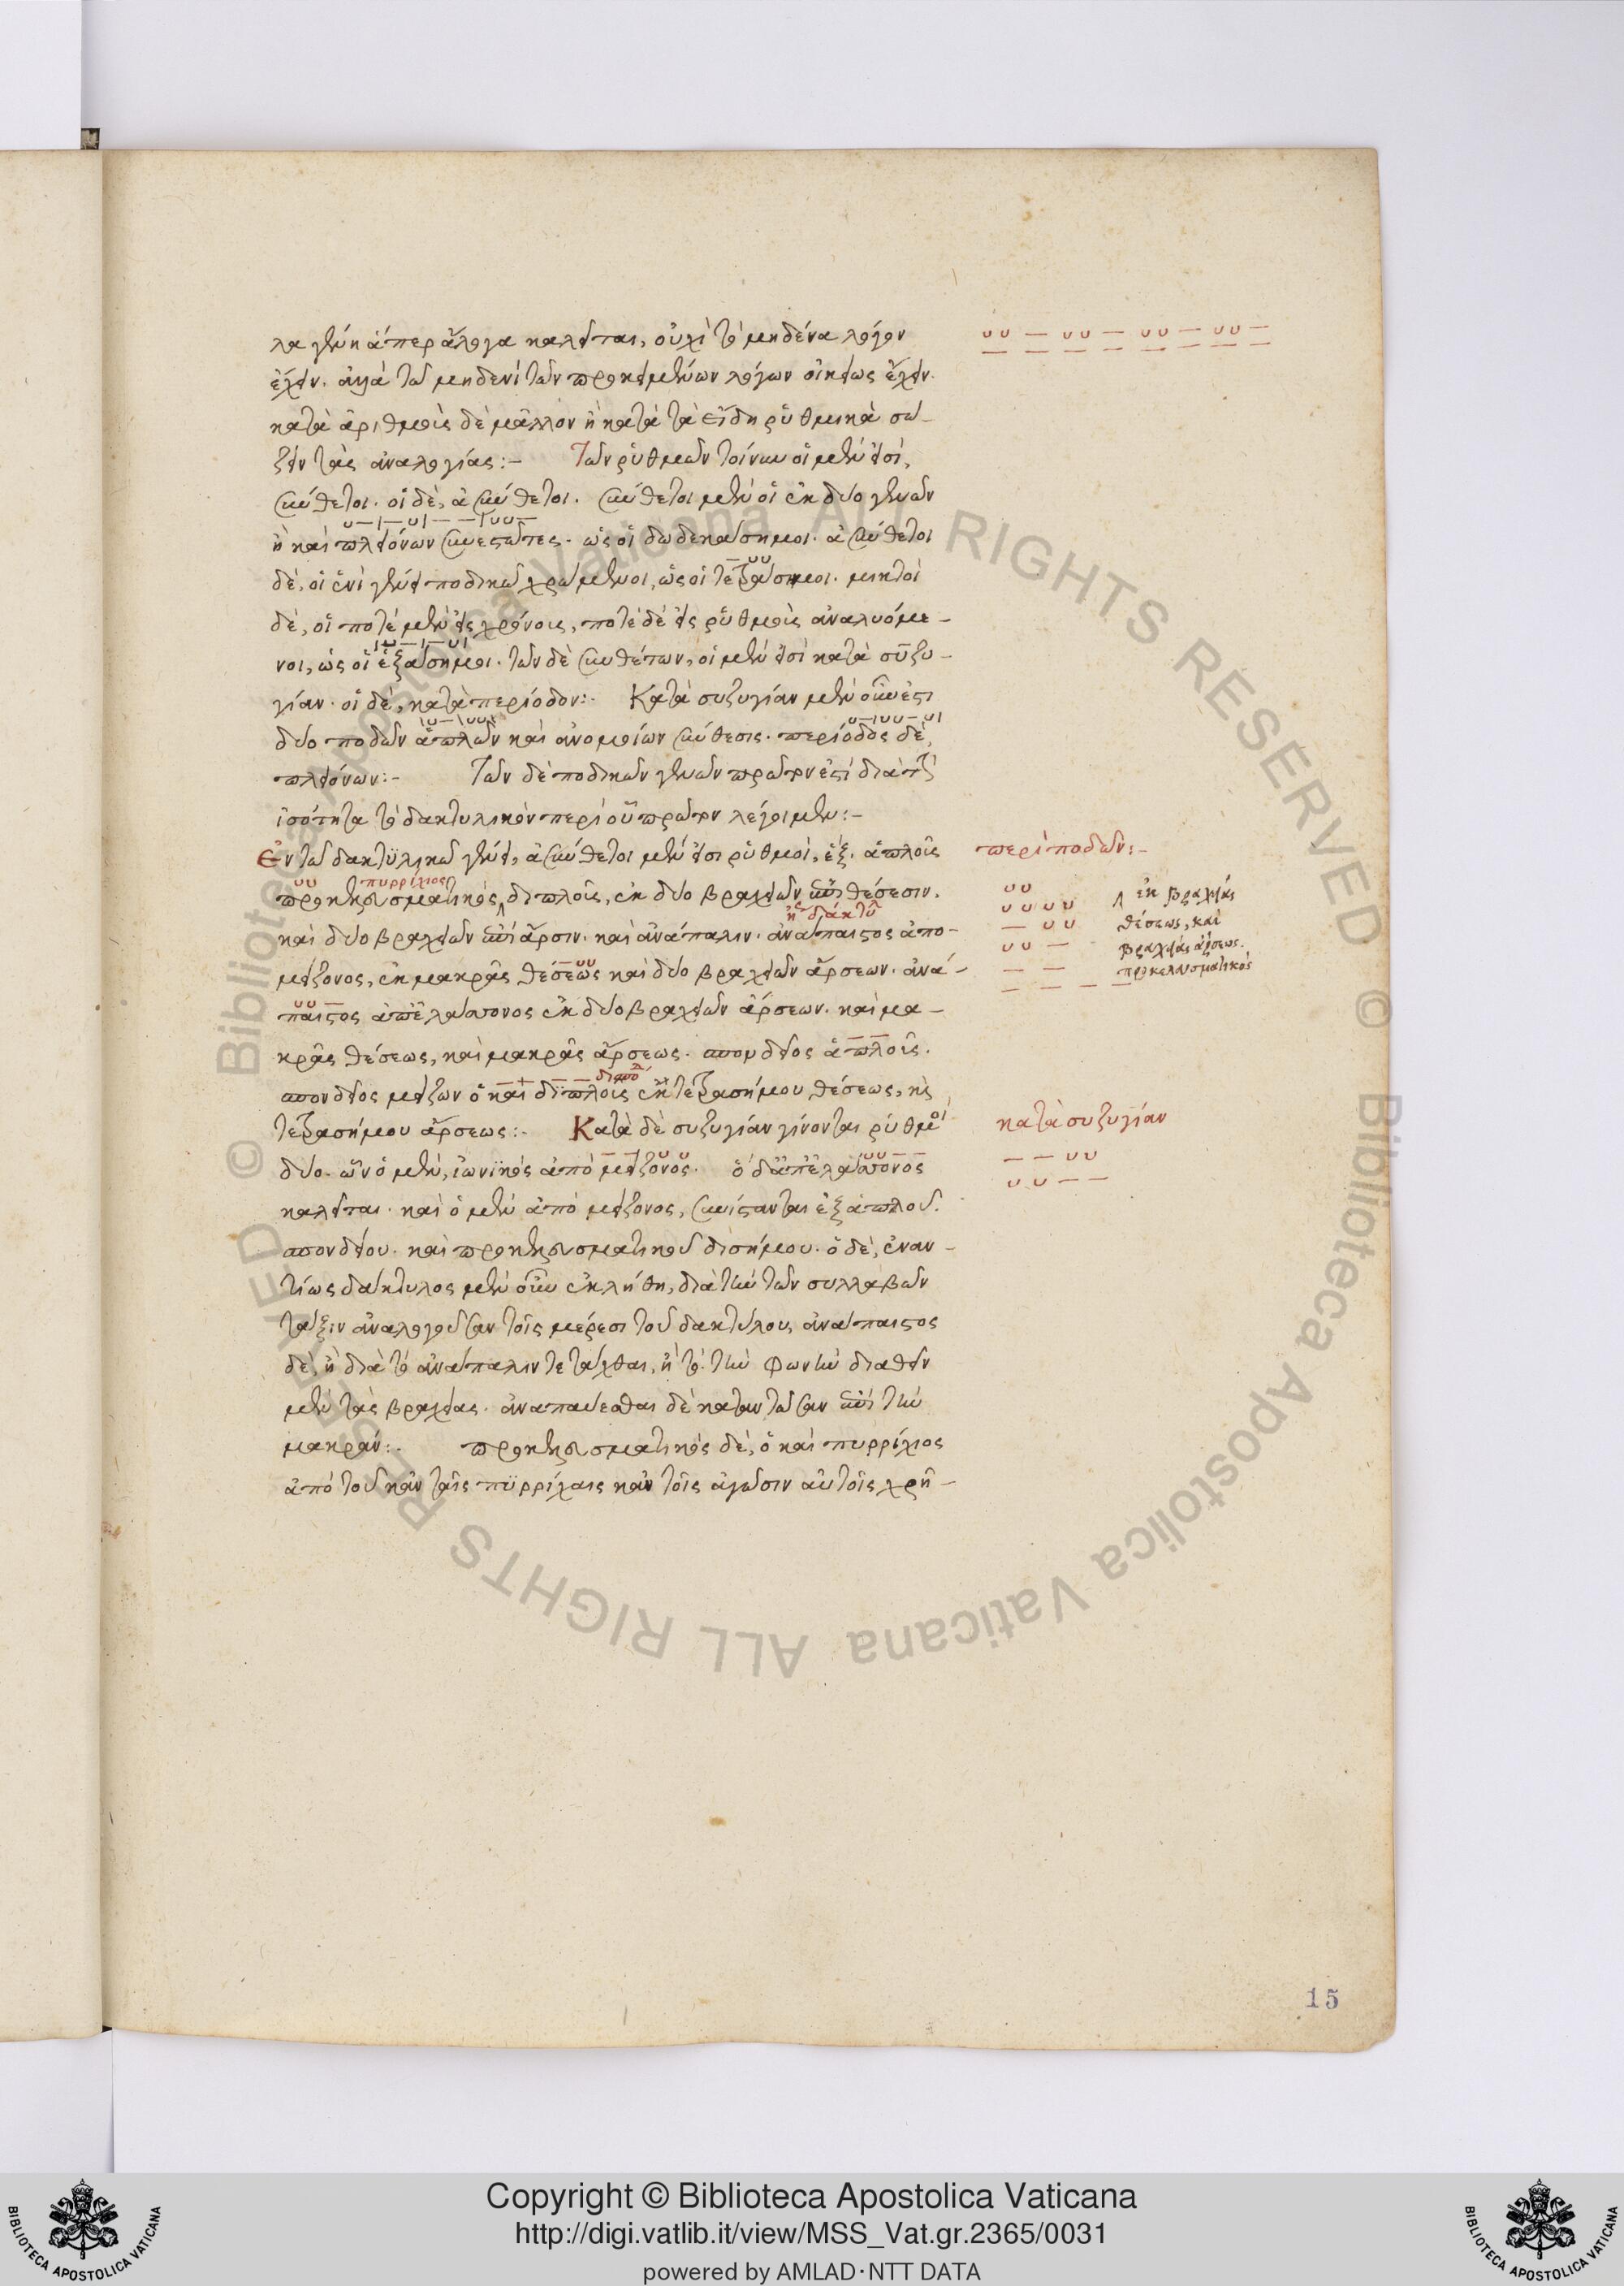 λα γένη ἅπερ ἄλογα καλεῖται, οὐχὶ τὸ μηδένα λόγον
ἔχειν. ἀλλὰ τῶ μηδενὶ τῶν προκειμένων λόγων οἰκείως ἔχειν.
κατὰ ἀριθμοὺς δὲ μᾶλλον ἢ κατὰ τὰ εἴδη ῥυθμικὰ σώ-
ζειν τὰς ἀναλογίας:- Τῶν ῥυθμῶν τοίνυν οἱ μέν εἰσι,
σύνθετοι. οἱ δὲ, ἀσύνθετοι. σύνθετοι μὲν οἱ ἐκ δύο γενῶν
ἢ καὶ πλειόνων συνεστῶτες. ὡς οἱ δωδεκάσημοι. ἀσύνθετοι
δὲ, οἱ ἑνὶ γένει ποδικῶ χρώμενοι, ὡς οἱ τετράσημοι. μικτοὶ
δὲ, οἱ ποτὲ μὲν εἰς χρόνους, ποτὲ δὲ εἰς ῥυθμοὺς ἀναλυόμε-
νοι, ὡς οἱ ἑξάσημοι. τῶν δὲ συνθέτων, οἱ μέν εἰσι κατὰ συζυ-
γίαν. οἱ δὲ, κατὰ περίοδον:. Κατὰ συζυγίαν μὲν οὖν ἐστι
δύο ποδῶν ἁπλῶν καὶ ἀνομοίων σύνθεσις. περίοδος δὲ,
πλειόνων:- Τῶν δὲ ποδικῶν γενῶν πρῶτον ἐστὶ διὰ τὴν
ἰσότητα τὸ δακτυλικὸν περὶ οὗ πρῶτον λέγοιμεν:-
Ἐν τῶ δακτυλικῶ γένει, ἀσύνθετοι μέν εἰσι ῥυθμοὶ, ἕξ. ἁπλοῦς
πυρρίχιος
προκελευσματικὸς, διπλοῦς, ἐκ δύο βραχειῶν ἐπὶ θέσεσιν.
ἢ δάκτυ
καὶ δύο βραχειῶν ἐπὶ ἄρσιν. καὶ ἀνάπαλιν. ἀνάπαιστος ἀπο-
μείζονος, ἐκ μακρᾶς θέσεως καὶ δύο βραχειῶν ἄρσεων. ἀνά-
παιστος ἀπ' ἐλάττονος ἐκ δύο βραχειῶν ἄρσεων. καὶ μα-
κρᾶς θέσεως, καὶ μακρᾶς ἄρσεως. σπονδεῖος ἁπλοῦς.
σπονδεῖος μείζων ὁ καὶ διπλοῦς ἐκ τετρασήμου θέσεως, κ
τετρασήμου ἄρσεως:. Κατὰ δὲ συζυγίαν γίνονται ῥυθμοὶ
δύο. ὧν ὁ μὲν, ἰωνικὸς ἀπὸ μείζονος. ὁ δ' ἀπ' ἐλάττονος
καλεῖται. καὶ ὁ μὲν ἀπὸ μείζονος, συνίσταται ἐξ ἁπλοῦ.
σπονδείου. καὶ προκελευσματικοῦ δισήμου. ὁ δὲ, ἐναν-
τίως δάκτυλος μὲν οὖν ἐκλήθη, διὰ τὴν τῶν συλλαβῶν
τάξιν ἀναλογοῦσαν τοῖς μέρεσι τοῦ δακτύλου, ἀνάπαιστος
δὲ, ἢ διὰ τὸ ἀνάπαλιν τετάχθαι, ἢ τὸ. τὴν φωνὴν διαθεῖν
μὲν τὰς βραχείας. ἀναπαύεσθαι δὲ καταντῶσαν ἐπὶ τὴν
μακράν:. προκελευσματικὸς δὲ, ὁ καὶ πυρρίχιος
ἀπὸ τοῦ κἀν ταῖς πυρρίχαις κἀν τοῖς ἀγῶσιν αὐτοῖς χρῆ-
περὶ ποδῶν:-
ἐκ βραχείας
θέσεως, καὶ
βραχείας ἄρσεως.
προκελευσματικὸς
κατὰ συζυγίαν
15
© Biblioteca Apostolica Vaticana ALL RIGHTS RESERVED © Biblioteca Apostolica Vaticana ALL RIGHTS RESERVED
BIBLIOTECA APOSTOLICA VATICANA
Copyright © Biblioteca Apostolica Vaticana
http://digi.vatlib.it/view/MSS_Vat.gr.2365/0031
powered by AMLAD·NTT DATA
BIBLIOTECA APOSTOLICA VATICANA